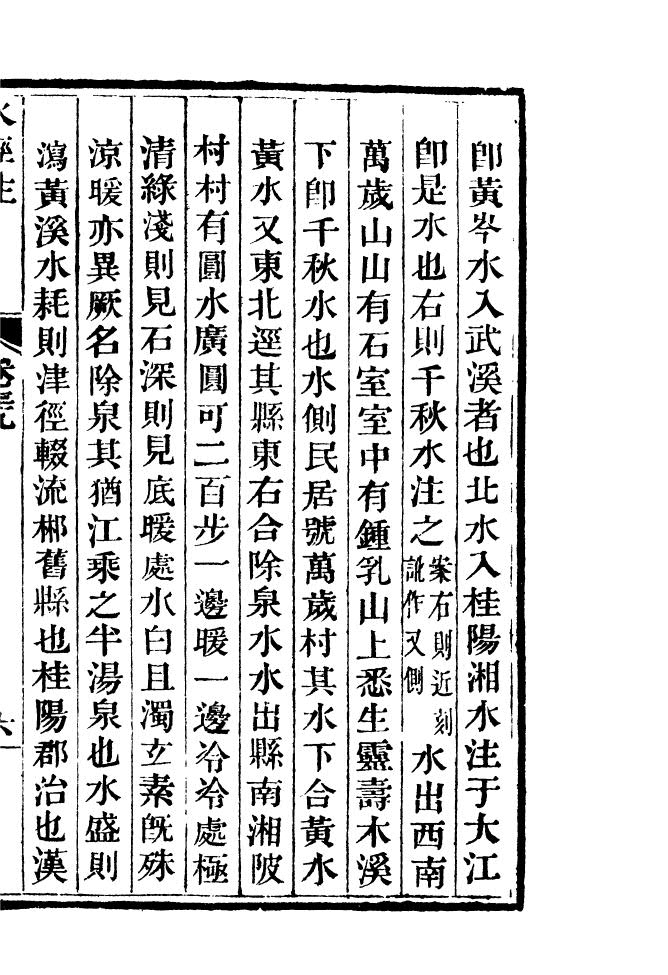 卽黃岑水入武溪者也北水入桂陽湘水注于大江
卽是水也右則千秋水注之案右則近刻訛作又側水出西南
萬歲山山有石室室中有鍾乳山上悉生靈壽木溪
下卽千秋水也水側民居號萬歲村其水下合黃水
黃水又東北逕其縣東右合除泉水水出縣南湘陂
村村有圓水廣圓可二百步一邊暖一邊冷冷處極
清綠淺則見石深則見底暖處水白且濁玄素旣殊
涼暖亦異厥名除泉其猶江乘之半湯泉也水盛則
瀉黃溪水耗則津徑輟流郴舊縣也桂陽郡治也漢
水經注
六